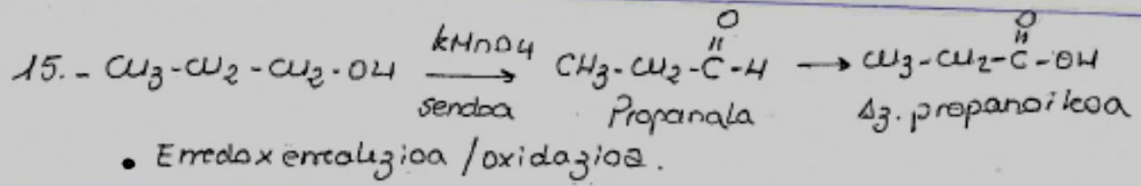 O O
15.- CH3-CH2-CH2-OH KMnO4 → CH3-CH2-C-H → CH3-CH2-C-OH
sendoa Propanala Az. propanoikoa
• Erredox erreakzioa / oxidazioa.